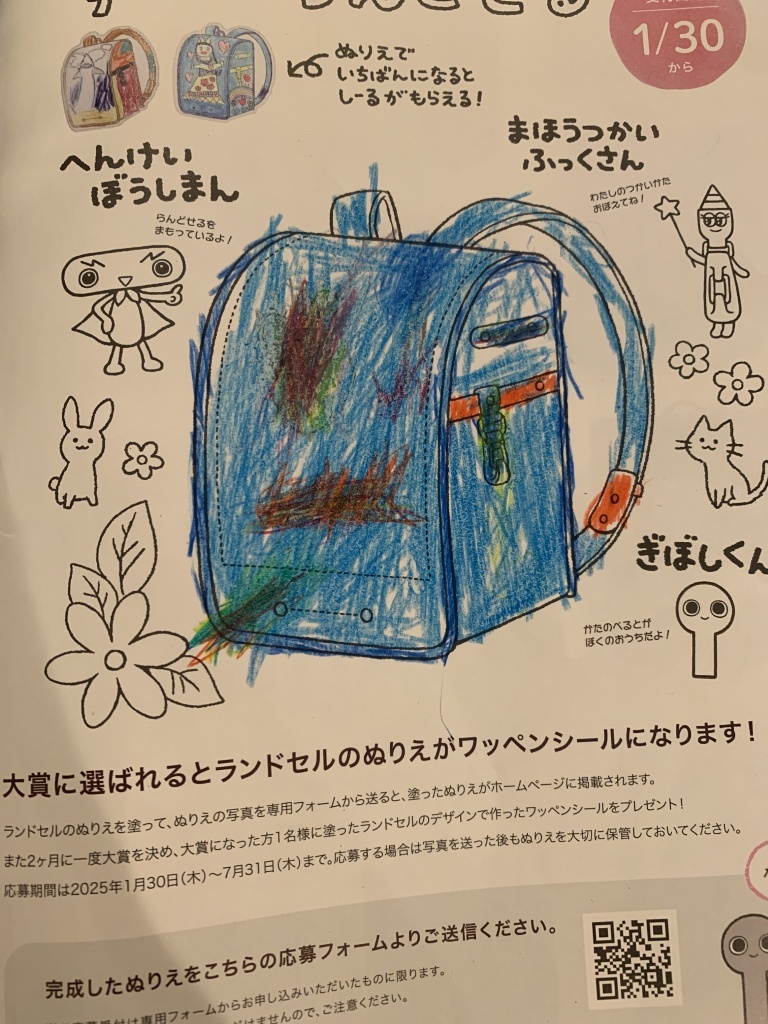 1/30
から
ぬりえで
いちばんになると
しーるがもらえる!
へんけい
ぼうしまん
らんどせるを
まもっているよ!
まほうつかい
ふっくさん
わたしのつかいかた
おぼえてね!
ぎぼしくん
かたのべるとが
ぼくのおうちだよ!
大賞に選ばれるとランドセルのぬりえがワッペンシールになります!
ランドセルのぬりえを塗って、ぬりえの写真を専用フォームから送ると、塗ったぬりえがホームページに掲載されます。
また2ヶ月に一度大賞を決め、大賞になった方1名様に塗ったランドセルのデザインで作ったワッペンシールをプレゼント!
応募期間は2025年1月30日(木)~7月31日(木)まで。応募する場合は写真を送った後もぬりえを大切に保管しておいてください。
完成したぬりえをこちらの応募フォームよりご送信ください。
は専用フォームからお申し込みいただいたものに限ります。
んので、ご注意ください。